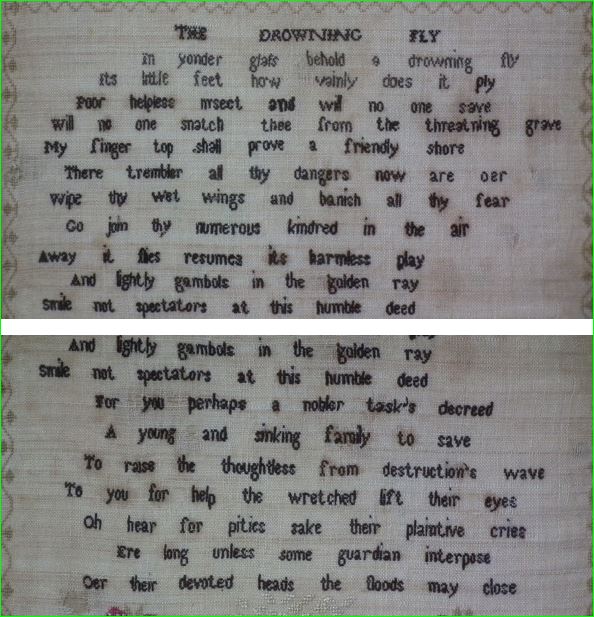 THE DROWNING FLY
in yonder glafs behold a drowning fly
its little feet how vainly does it ply
Poor helpless insect and will no one save
Will no one snatch thee from the threatning grave
My finger top shall prove a friendly shore
There trembler all thy dangers now are oer
Wipe thy wet wings and banish all thy fear
Go join thy numerous kindred in the air
Away it flies resumes its harmless play
And lightly gambols in the golden ray
Smile not spectators at this humble deed
And lightly gambols in the golden ray
Smile not spectators at this humble deed
For you perhaps a nobler task's decreed
A young and sinking family to save
To raise the thoughtless from destruction's wave
To you for help the wretched lift their eyes
Oh hear for pities sake their plaintive cries
Ere long unless some guardian interpose
Oer their devoted heads the floods may close